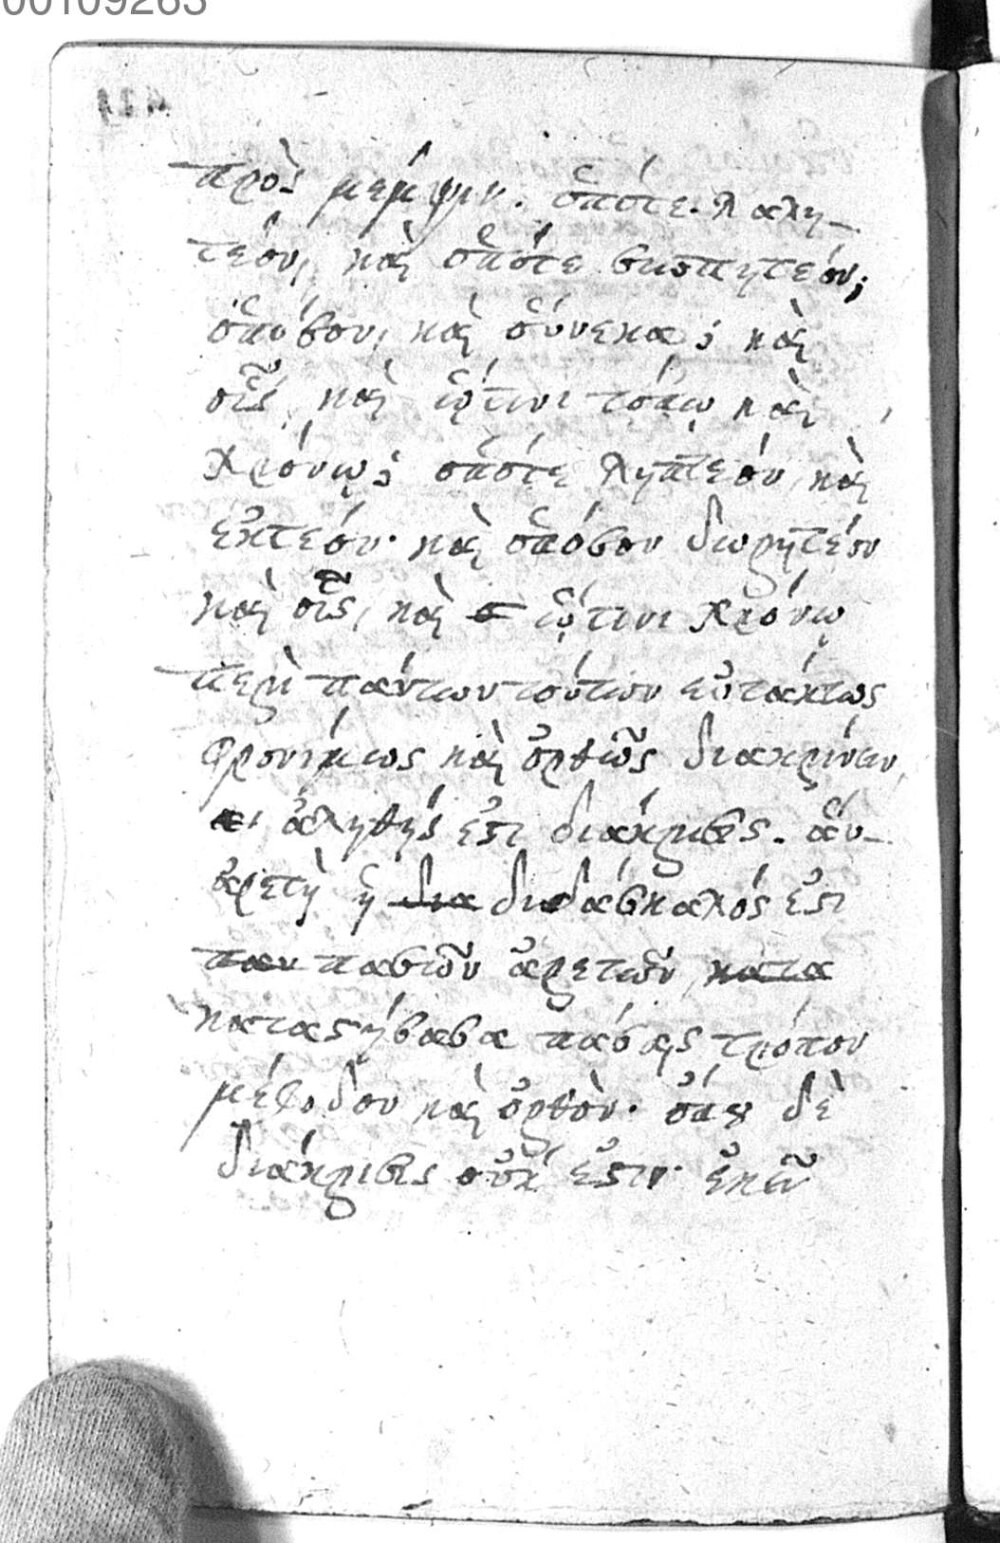 00109263
πρὸς μέμψιν. ὁπότε λαλη-
τέον, καὶ ὁπότε σιωπητέον;
ὁπόσον, καὶ οὕνεκα; καὶ
οἷς, καὶ ᾧτινι τόπῳ καὶ
χρόνῳ; ὁπότε ληπτέον, καὶ
ἑκτέον· καὶ ὁπόσον δωρητέον
καὶ οἷς, καὶ ᾧτινι χρόνῳ
περὶ πάντων τούτων εὐτάκτως
φρονίμως καὶ ὀρθῶς διακρίνειν,
ἀληθής ἐστι διάκρισις. αὕ-
ἀρετὴ ἡ δια διδάσκαλός ἐστι
παν πασῶν ἀρετῶν, κατα
καταστήσασα πάσαις τρόπον
μέθοδον καὶ ὀρθὸν. ὅπου δὲ
διάκρισις οὐκ ἔστιν· ἐκεῖ